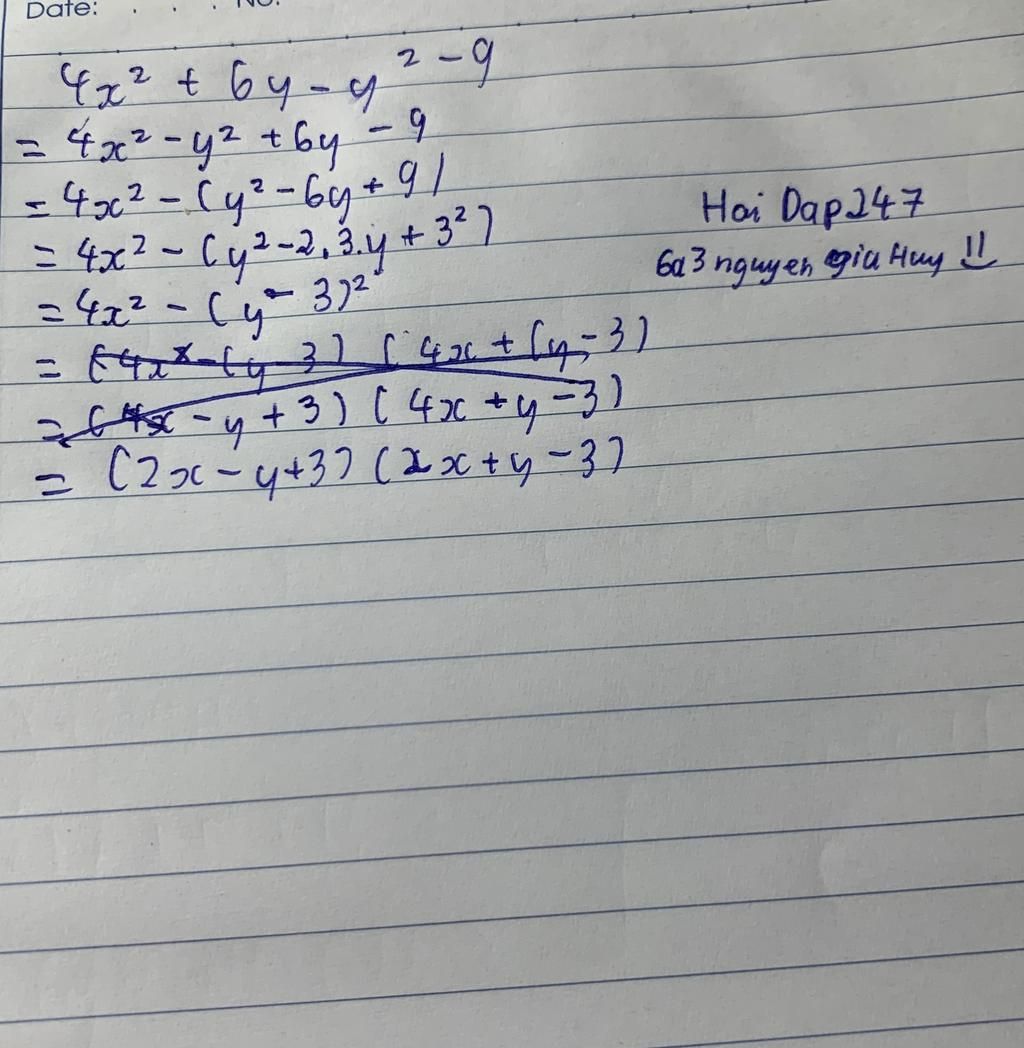 Date: . . . No.
4x² + 6y - y² - 9
= 4x² - y² + 6y - 9
= 4x² - (y² - 6y + 9)
= 4x² - (y² - 2.3.y + 3²)
= 4x² - (y - 3)²
= (4x - (y - 3) (4x + (y - 3)
= (4x - y + 3) (4x + y - 3)
= (2x - y + 3) (2x + y - 3)
Hoi Dap247
6a3 nguyen gia Huy